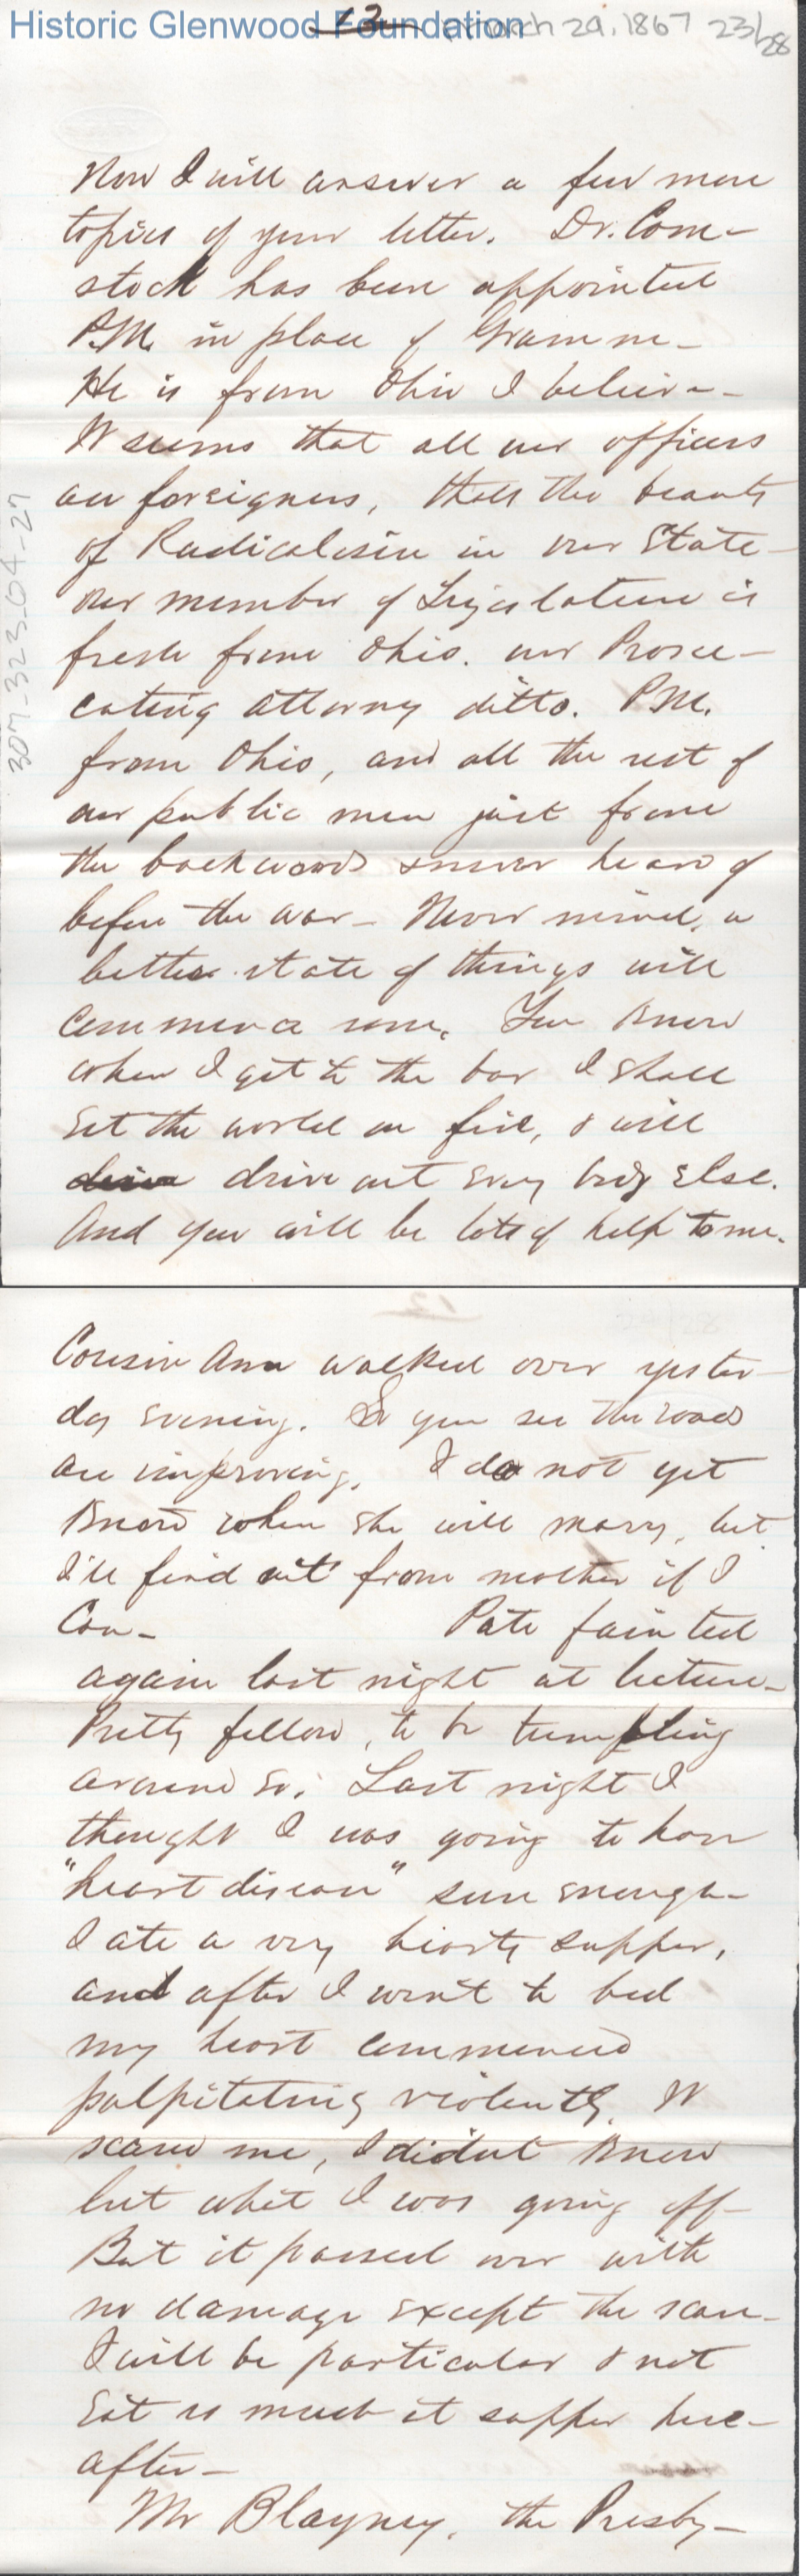 Historic Glenwood Foundation
13
March 29, 1867 23/28
Now I will answer a few more
topics of your letter. Dr. Com-
stock has been appointed
P.M. in place of
He is from Ohio I believe-
It seems that all our officers
are foreigners, thats the beauty
of Radicalism in our State-
Our member of Legislature is
fresh from Ohio. our Prose-
cuting attorney ditto. P.M.
from Ohio, and all the rest of
our public men just from
the backwoods & never heard of
before the war- Never mind, a
better state of things will
commence soon. You know
when I get to the bar I shall
set the world on fire, & will
drive out every body else.
And you will be lots of help to me.
307-323.04-27
Cousin Ann walked over yester-
day evening. So you see the roads
are improving. I do not yet
know when she will marry, but
I'll find out from mother if I
Can- Pate fainted
again last night at lecture-
Pretty fellow, to be tumbling
around so. Last night I
thought I was going to have
"heart disease" sure enough-
I ate a very hearty supper,
and after I went to bed
my heart commenced
palpitating violently. It
scared me, I didnt know
but what I was going off-
But it passed over with
no damage except the scare-
I will be particular & not
eat so much at supper here-
after-
Mr Blayney, the Presby-